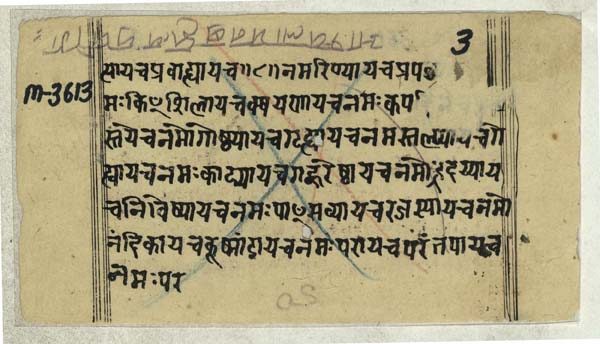 3
M-3613
त्याय च प्रवाह्याय च॥८॥ नम इरिण्याय च प्रप
मः किꣳशिलाय च क्षयणाय च नमः कप
स्तये च नमो गोष्ठ्याय च गृह्याय च नमस्तल्प्याय च गे
ह्याय च नमः काट्याय च गह्वरेष्ठाय च नमो हृदय्याय
च निवेष्याय च नमः पाꣳसव्याय च रजस्याय च नमो
नंदिकाय च कूष्मांडाय च नमः पराय च परं तपाय च
नमः पर